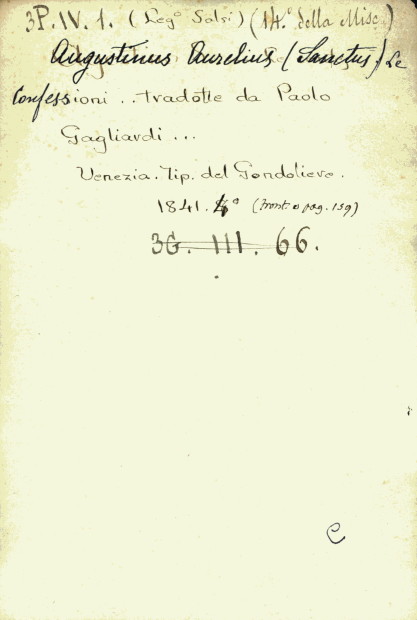 3P.IV.1. (Leg.º Salvi) (14.º della Misc.)
Augustinus Aurelius (Sanctus) Le
Confessioni .. tradotte da Paolo
Gagliardi ...
Venezia. Tip. del Gondoliere.
1841. 4º (Front. a pag. 159)
3G. III. 66.
C